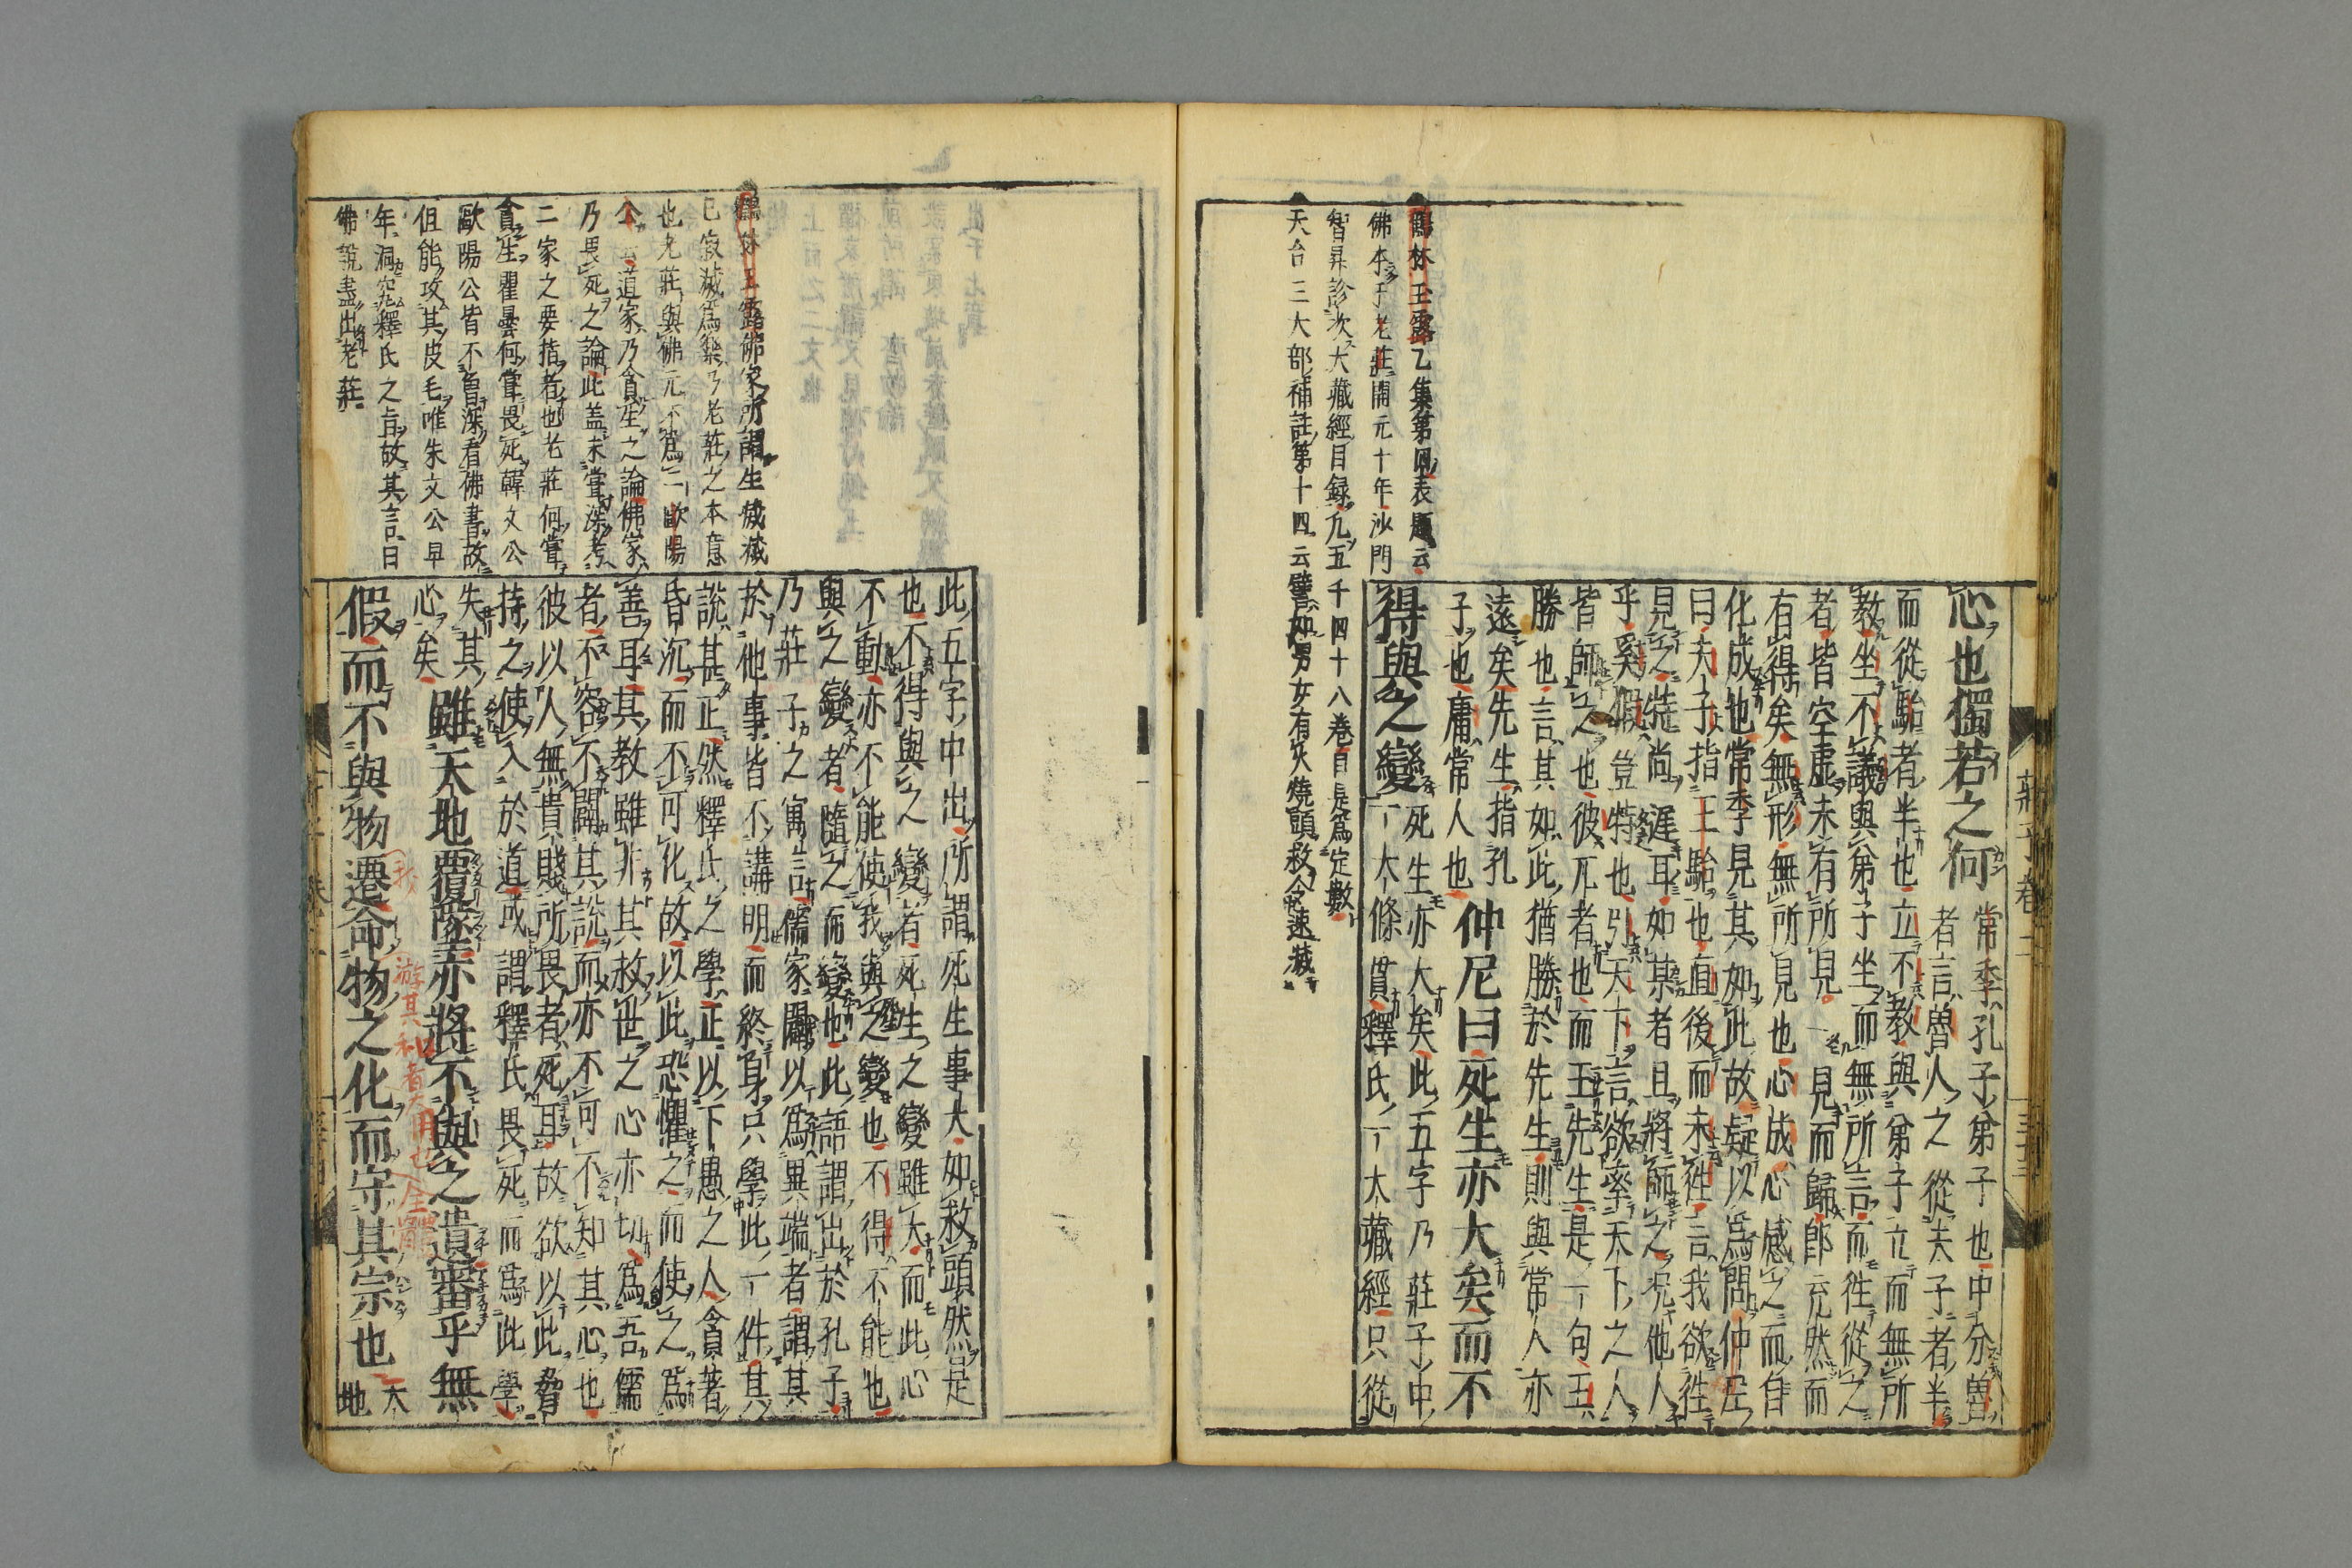 莊子卷二
心也獨若之何常季孔子弟子也中分魯
者言魯人之從夫子者半
而從駘者半也立不教與弟子立而無所
教坐不議與弟子坐而無所言而往從之
者皆空虛未有所見一見而歸即充然而
有得矣無形無所見也心成心感之而自
化成也常季見其如此故疑以爲問仲尼
曰夫子指王駘也直後而未往言我欲往
見之特尚遲耳如某者且將師之况他人
乎奚假豈特也引天下言欲率天下之人
皆師之也彼兀者也而王先生是一句王
勝也言其如此猶勝於先生則與常人亦
遠矣先生指孔
子也庸常人也仲尼曰死生亦大矣而不
得與之變死生亦大矣此五字乃莊子中
一大條貫釋氏一大藏經只從
鶴林玉露乙集第四表題云
佛本于老莊開元十年沙門
智昇診次大藏經目録凡五千四十八卷自是爲定數
天台三大部補註第十四云譬如男女有火燒頭救令速滅
此五字中出所謂死生事大如救頭然是
也不得與之變者死生之變雖大而此心
不動亦不能使我與之變也不得不能也
與之變者隨之而變也此語謂出於孔子
乃莊子之寓言儒家闢以爲異端者謂其
於他事皆不講明而終身只學此一件其
說甚正然釋氏之學正以下愚之人貪著
昏沉而不可化故以此恐懼之而使之爲
善耳其教雖非其救世之心亦切爲吾儒
者不容不闢其說而亦不可不知其心也
彼以人無貴賤所畏者死耳故欲以此脅
持之使入於道或謂釋氏畏死而爲此學
失其
心矣雖天地覆墜亦將不與之遺審乎無
假而不與物遷命物之化而守其宗也天
地
鶴林玉露佛家所謂生滅滅
已寂滅爲樂乃老莊之本意
也老莊與佛元不爲二歐陽
公云道家乃貪生之論佛家
乃畏死之論此盖未嘗深考
二家之要指者也老莊何嘗
貪生瞿曇何嘗畏死韓文公
歐陽公皆不曽深看佛書故
但能攻其皮毛唯朱文公早
年洞究釋氏之旨故其言曰
佛說盡出老莊